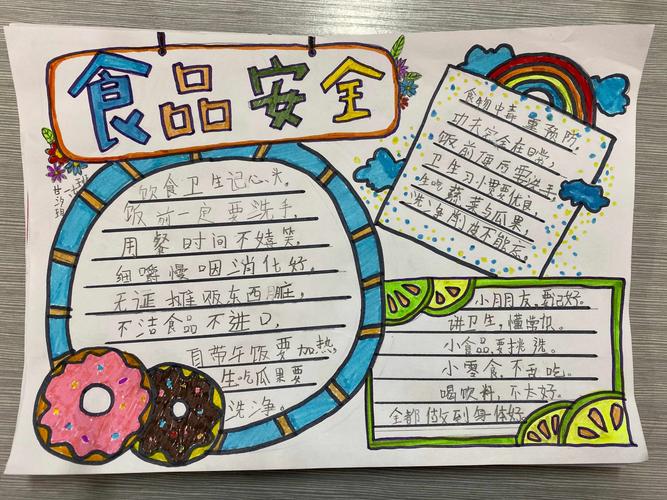 食品安全
饮食卫生记心头,
饭前一定要洗手,
用餐时间不嬉笑,
细嚼慢咽消化好。
无证摊贩东西脏,
不洁食品不进口,
自带午饭要加热
生吃瓜果要
洗净。
食物中毒重预防。
功夫完全在日常。
饭前便后要洗手,
卫生习惯要优良,
生吃蔬菜与瓜果,
洗净削皮不能忘。
小朋友,要记好。
讲卫生,懂常识。
小食品,要挑选。
小零食,不乱吃。
喝饮料,不太好。
全都做到身体好。